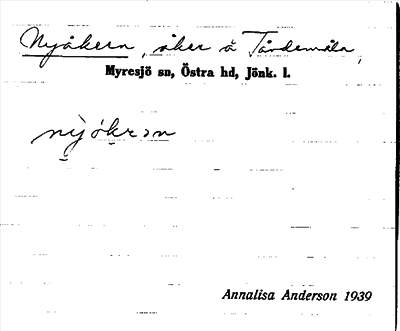 Nyåkern, åker å Tårdemåla,
Myresjö sn, Östra hd, Jönk. l.
nỳó̯krən
Annalisa Anderson 1939